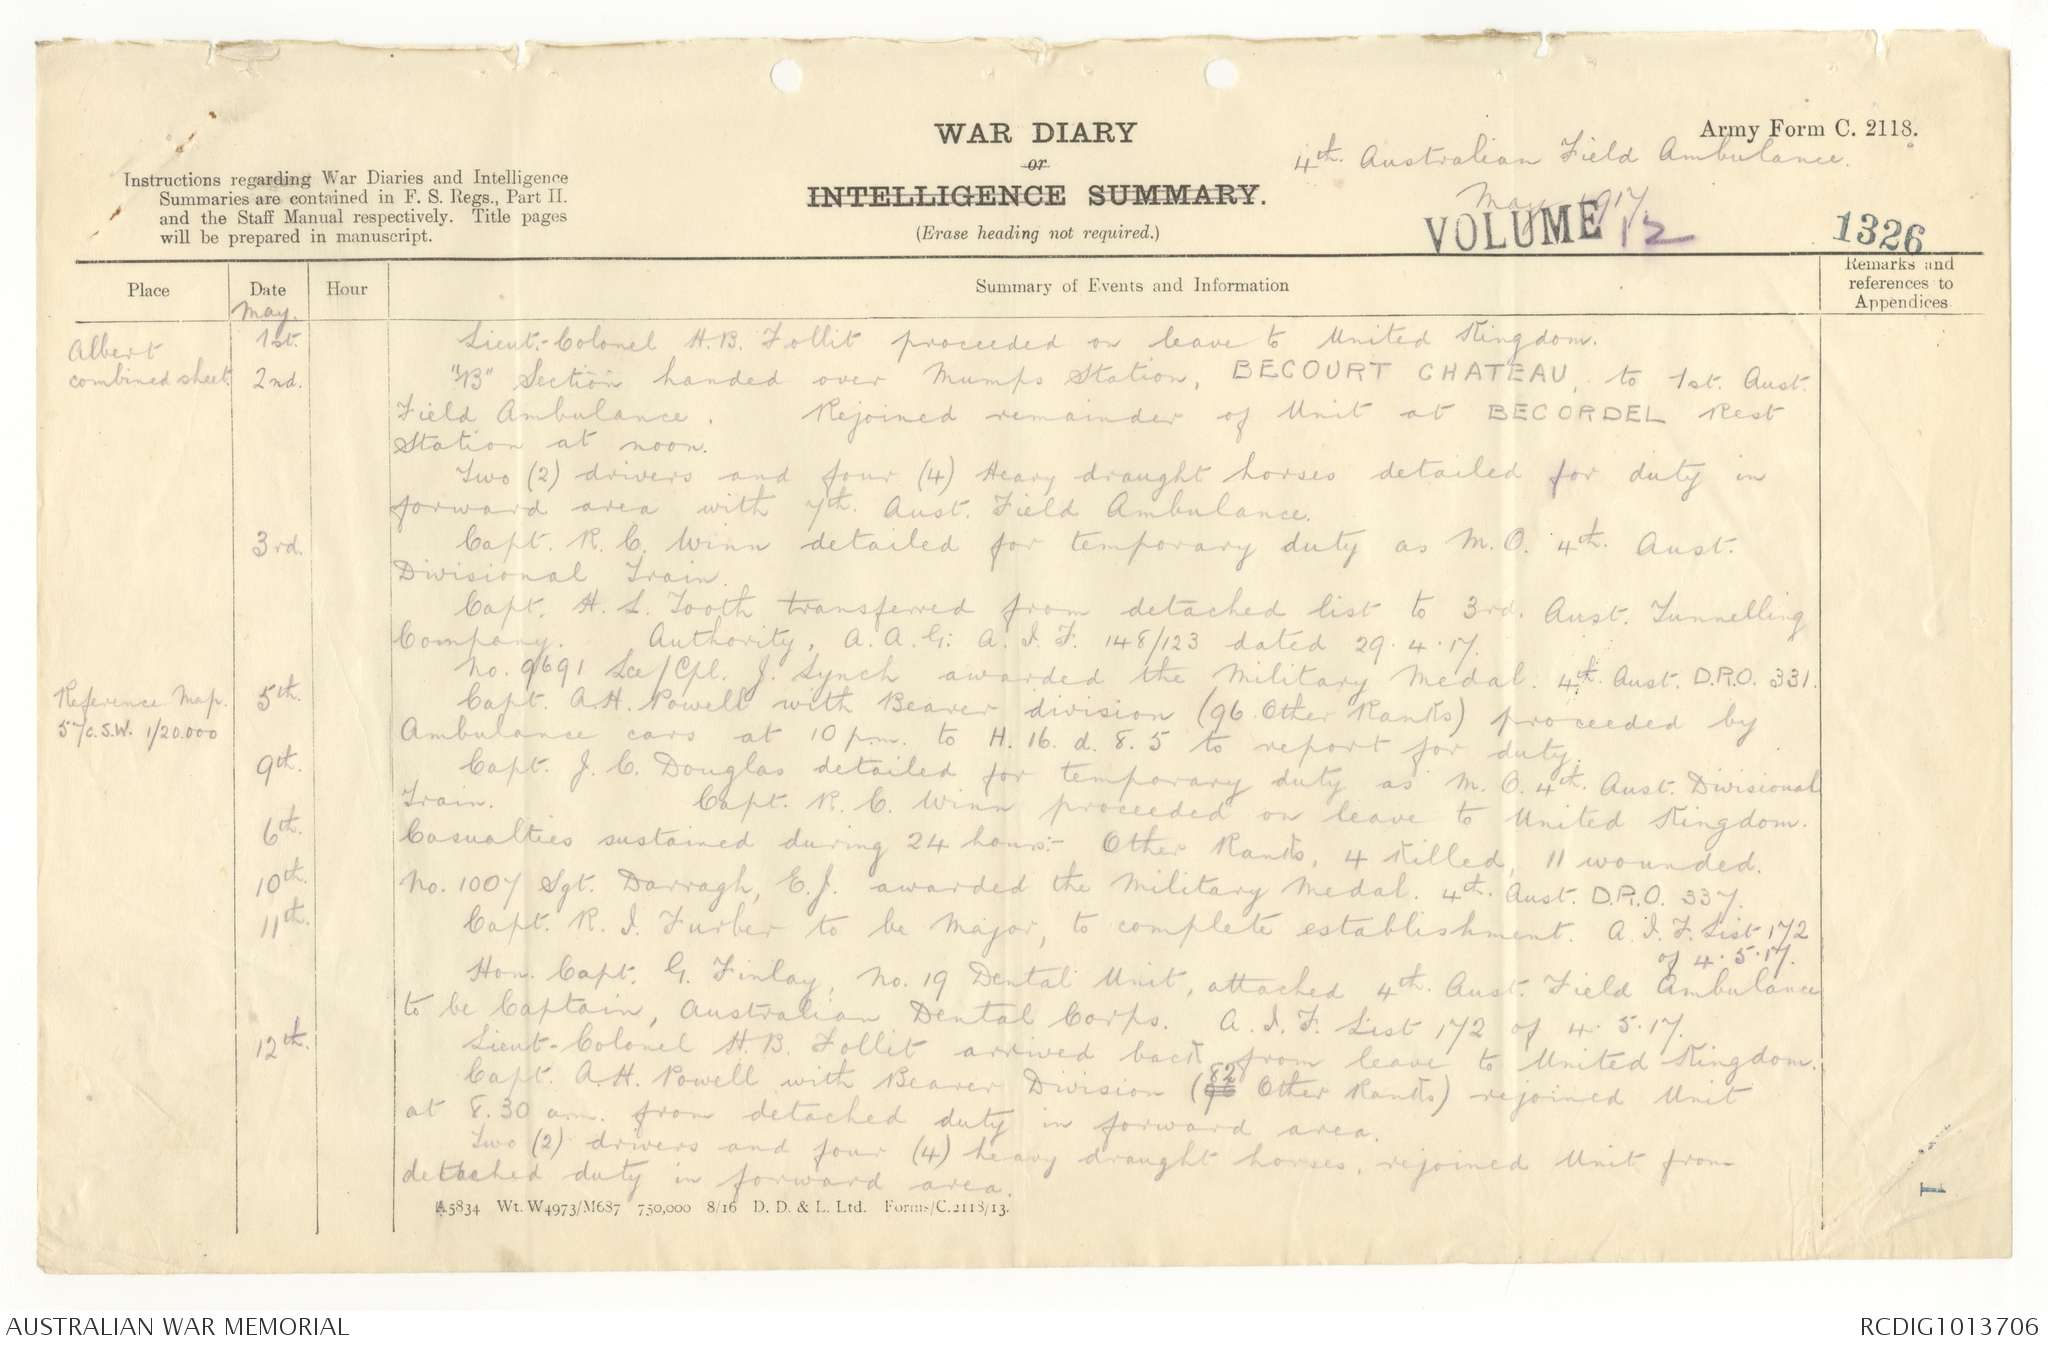 WAR DIARY
or
INTELLIGENCE SUMMARY.
(Erase heading not required.)
Army Form C. 2118.
4th. Australian Field Ambulance.
May 1917
VOLUME 12
1326
Instructions regarding War Diaries and Intelligence
Summaries are contained in F. S. Regs., Part II.
and the Staff Manual respectively. Title pages
will be prepared in manuscript.
Place
Date
Hour
Summary of Events and Information
Remarks and
references to
Appendices
May.
Albert
combined sheet.
1st. Lieut.-Colonel H.B. Follit proceeded on leave to United Kingdom.
2nd. "B" Section handed over Mumps Station, BECOURT CHATEAU, to 1st. Aust.
Field Ambulance. Rejoined remainder of Unit at BECORDEL Rest
Station at noon.
Two (2) drivers and four (4) Heavy draught horses detailed for duty in
forward area with 7th. Aust. Field Ambulance.
3rd. Capt. R. C. Winn detailed for temporary duty as M.O. 4th. Aust.
Divisional Train.
Capt. H. L. Tooth transferred from detached list to 3rd. Aust. Tunnelling
Company. Authority, A. A. G. A. I. F. 148/123 dated 29.4.17.
No. 9691 Lce/Cpl. J. Lynch awarded the Military Medal. 4th. Aust. D.R.O. 331.
Reference Map.
57c. S.W. 1/20.000
5th. Capt. A.H. Powell with Bearer division (96 Other Ranks) proceeded by
Ambulance cars at 10 p.m. to H. 16. d. 8. 5 to report for duty.
9th. Capt. J. C. Douglas detailed for temporary duty as M. O. 4th. Aust. Divisional
Train. Capt. R. C. Winn proceeded on leave to United Kingdom.
6th. Casualties sustained during 24 hours:- Other Ranks, 4 killed, 11 wounded.
10th. No. 1007 Sgt. Darragh, E.J. awarded the Military Medal. 4th. Aust. D.R.O. 337.
11th. Capt. R. I. Furber to be Major, to complete establishment. A. I. F. List 172
of 4.5.17.
Hon. Capt. G. Finlay, No. 19 Dental Unit, attached 4th. Aust. Field Ambulance
to be Captain, Australian Dental Corps. A. I. F. List 172 of 4.5.17.
12th. Lieut-Colonel H. B. Follit arrived back from leave to United Kingdom.
Capt. A.H. Powell with Bearer Division (96 82 Other Ranks) rejoined Unit
at 8.30 a.m. from detached duty in forward area.
Two (2) drivers and four (4) heavy draught horses, rejoined Unit from
detached duty in forward area.
A5834 Wt. W4973/M687 750,000 8/16 D. D. & L. Ltd. Forms/C.2118/13.
1
AUSTRALIAN WAR MEMORIAL
RCDIG1013706